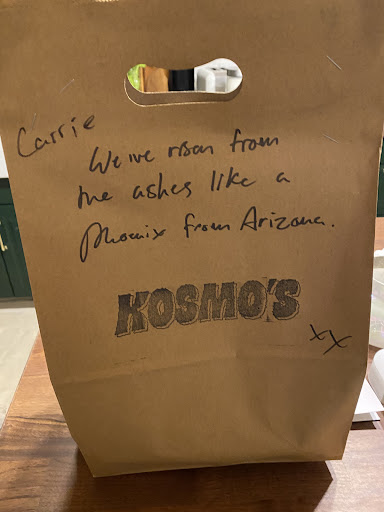 Carrie
We've risen from
the ashes like a
Phoenix from Arizona.
KOSMO'S
xx